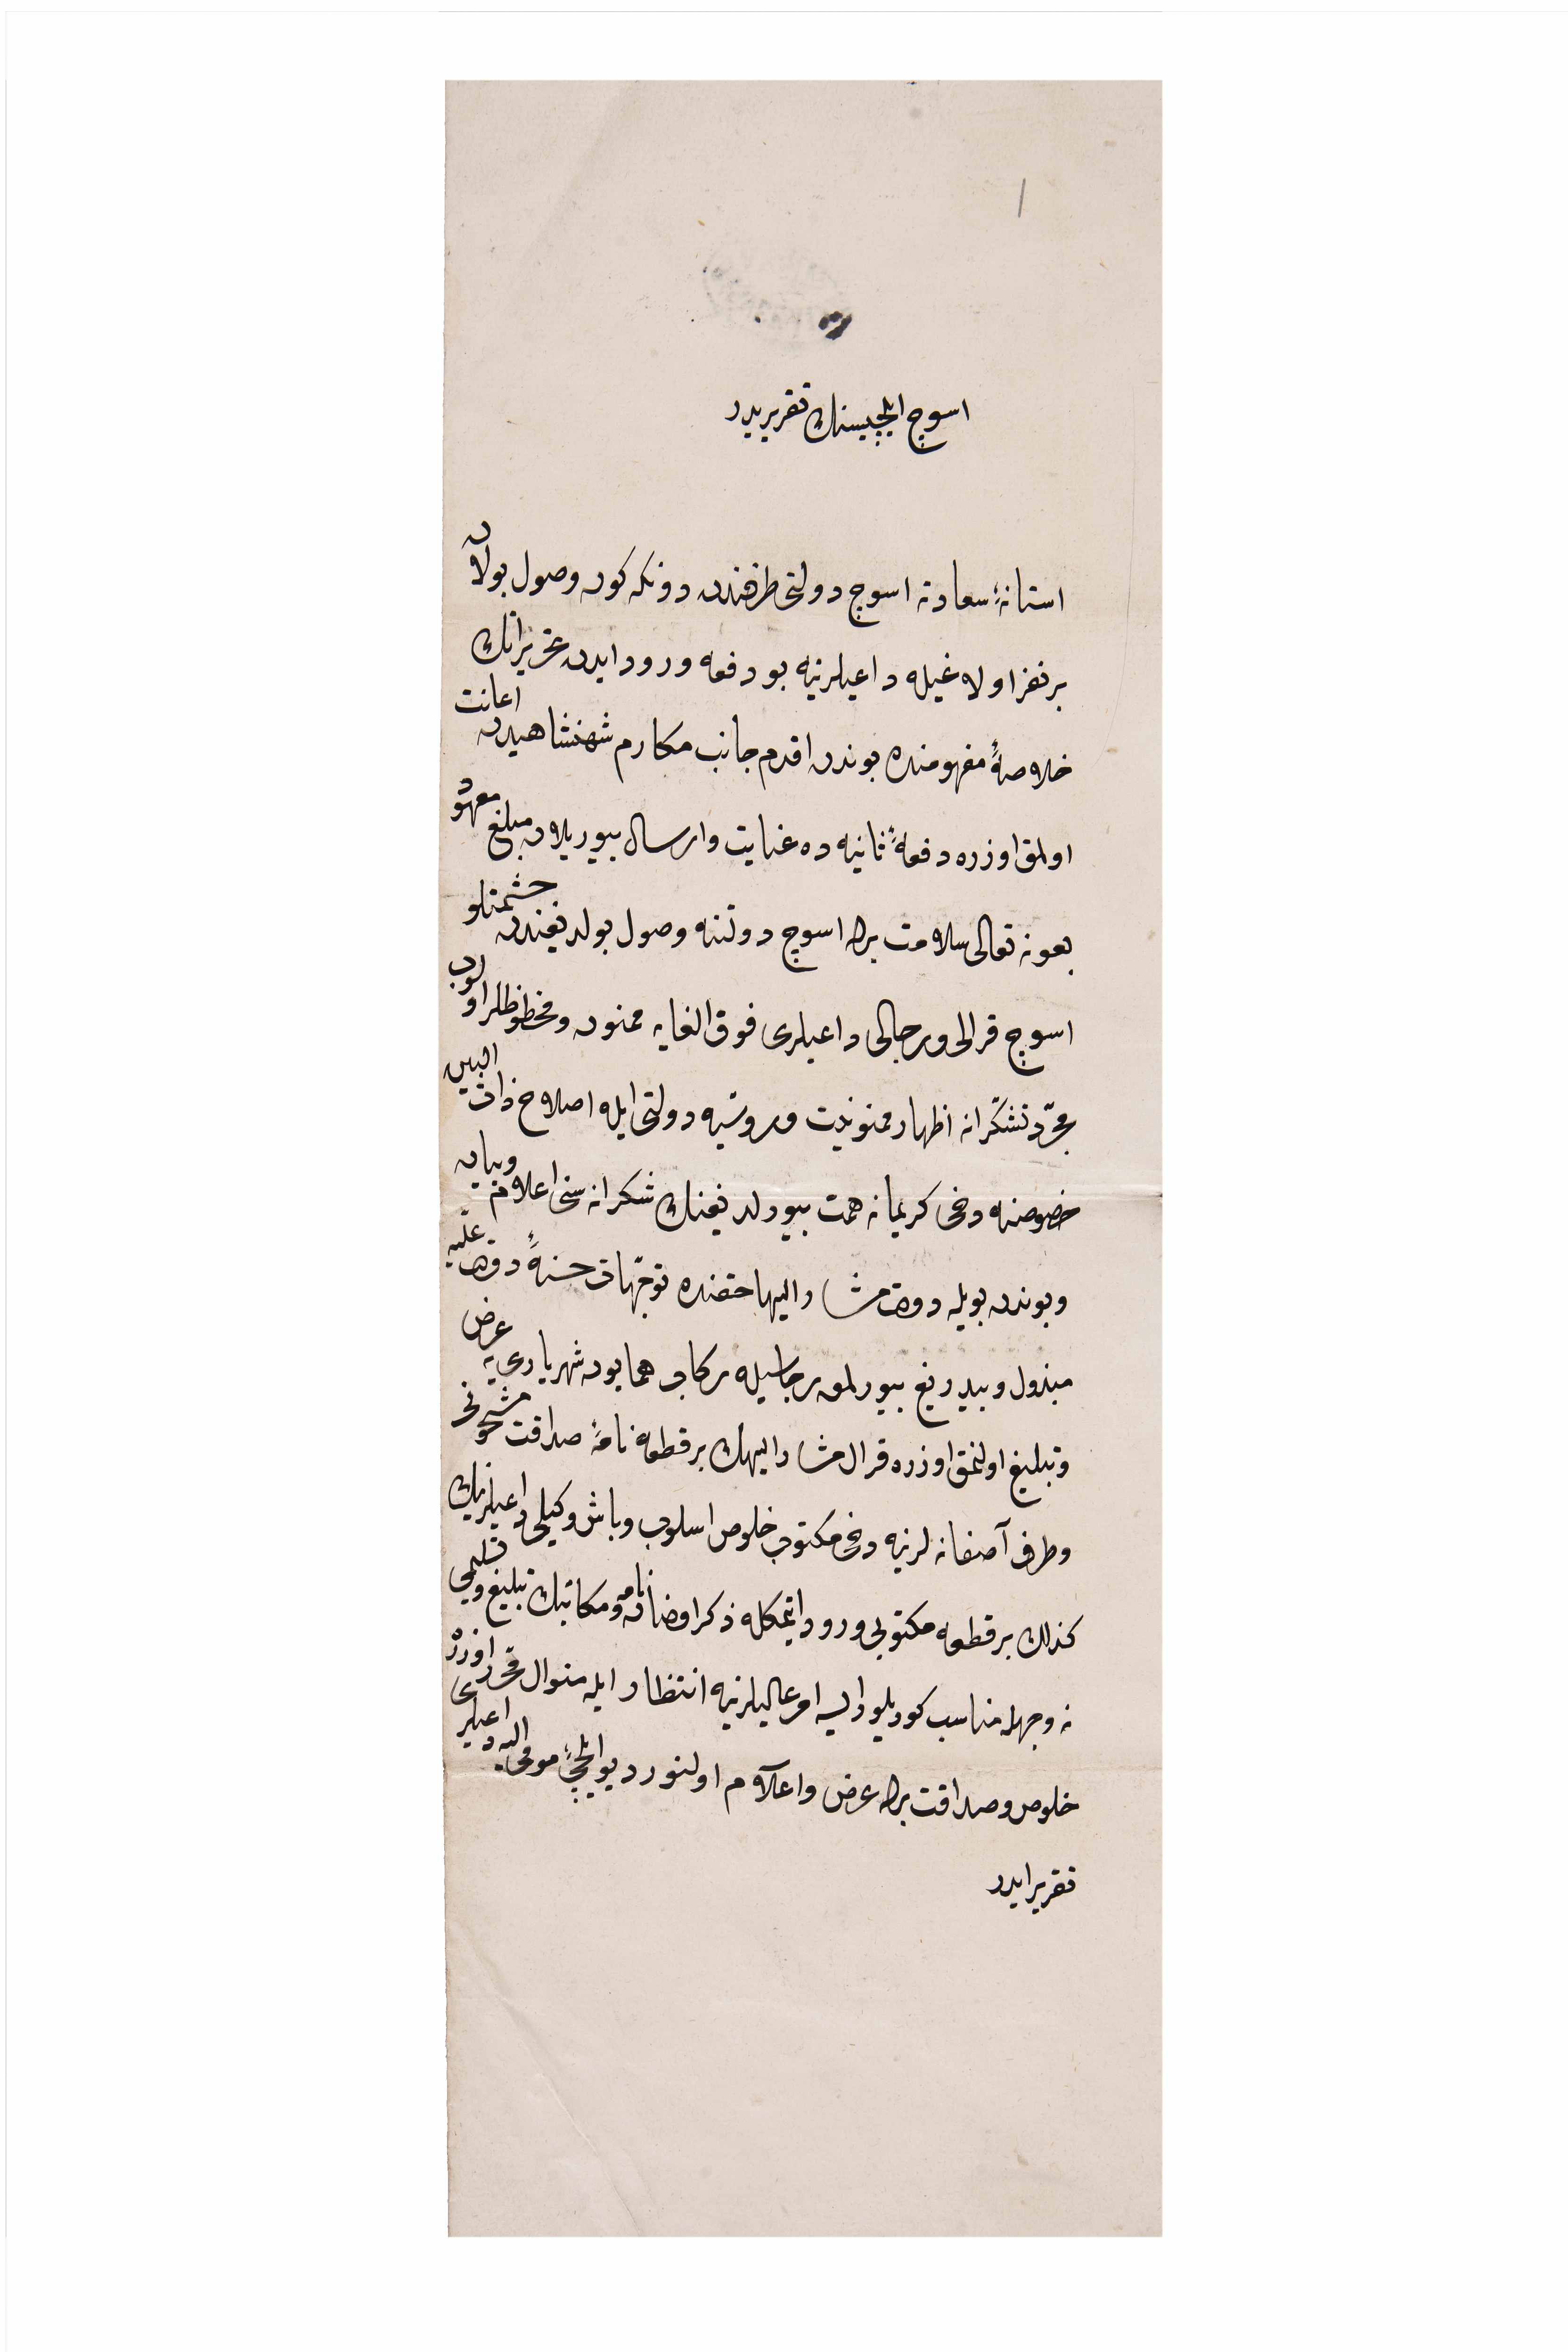 اسوج ایلچیسنك تقریریدر
استانهٔ سعادته اسوج دولتی طرفندن دونكه كون وصول بولان
بر نفر اولاغیله داعیلرینه بو دفعه ورود ایدن تحریراتك
خلاصهٔ مفهومنده بوندن اقدم جانب مكارم شهنشاهیدن اعانت
اولمق اوزره دفعهٔ ثانیه ده عنایت وارسال بیوریلان مبلغ معهود
بعونه تعالی سلامت برله اسوج دولتنه وصول بولدیغندن حشمتلو
اسوج قرالی ورجالی داعیلری فوق الغایه ممنون ومحظوظلر اولوب
مجرّد تشكّرانه اظهار ممنونیت وروسیه دولتی ایله اصلاح ذات البین
خصوصنه دخی كریمانه همت بیورلدیغنك شكرانه سنی اعلام وبیان
وبوندن بویله دولت مشار الیها حقنده توجّهات حسنهٔ دولت علیّه
مبذول وبیدریغ بیورلمه رجاسیله ركاب همایون شهریاری یه عرض
وتبلیغ اولنمق اوزره قرال مشار الیهك بر قطعه نامهٔ صداقت مشحونی
وطرف آصفانه لرینه دخی مكتوب خلوص اسلوب وباش وكیلی داعیلرینك
كذلك بر قطعه مكتوبی ورود ایتمكله ذكر اولنان نامه ومكاتبك تبلیغ وتسلیمی
نه وجهله مناسب كوریلور ایسه امر عالیلرینه انتظار ایله منوال محرر اوزره
خلوص وصداقت برله عرض واعلام اولنور دیو ایلچئ مومی الیه داعیلری
تقریر ایدر